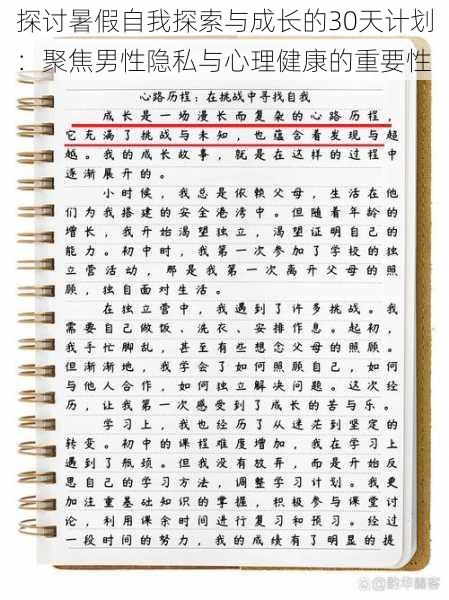 探讨暑假自我探索与成长的30天计划
：聚焦男性隐私与心理健康的重要性
心路历程：在挑战中寻找自我
成长是一场漫长而复杂的心路历程，
它充满了挑战与未知，也蕴含着发现与超
越。我的成长故事，就是在这样的过程中
逐渐展开的。
小时候，我总是依赖父母，生活在他
们为我搭建的安全港湾中。但随着年龄的
增长，我开始渴望独立，渴望证明自己的
能力。初中时，我第一次参加了学校的独
立营活动，那是我第一次离开父母的照
顾，独自面对生活。
在独立营中，我遇到了许多挑战。我
需要自己做饭、洗衣、安排作息。起初，
我手忙脚乱，甚至有些想念父母的照顾。
但渐渐地，我学会了如何照顾自己，如何
与他人合作，如何独立解决问题。这次经
历，让我第一次感受到了成长的苦与乐。
学习上，我也经历了从迷茫到坚定的
转变。初中的课程难度增加，我在学习上
遇到了瓶颈。但我没有放弃，而是开始反
思自己的学习方法，调整学习计划。我更
加注重基础知识的掌握，积极参与课堂讨
论，利用课余时间进行复习和预习。经过
一段时间的努力，我的成绩有了明显的提